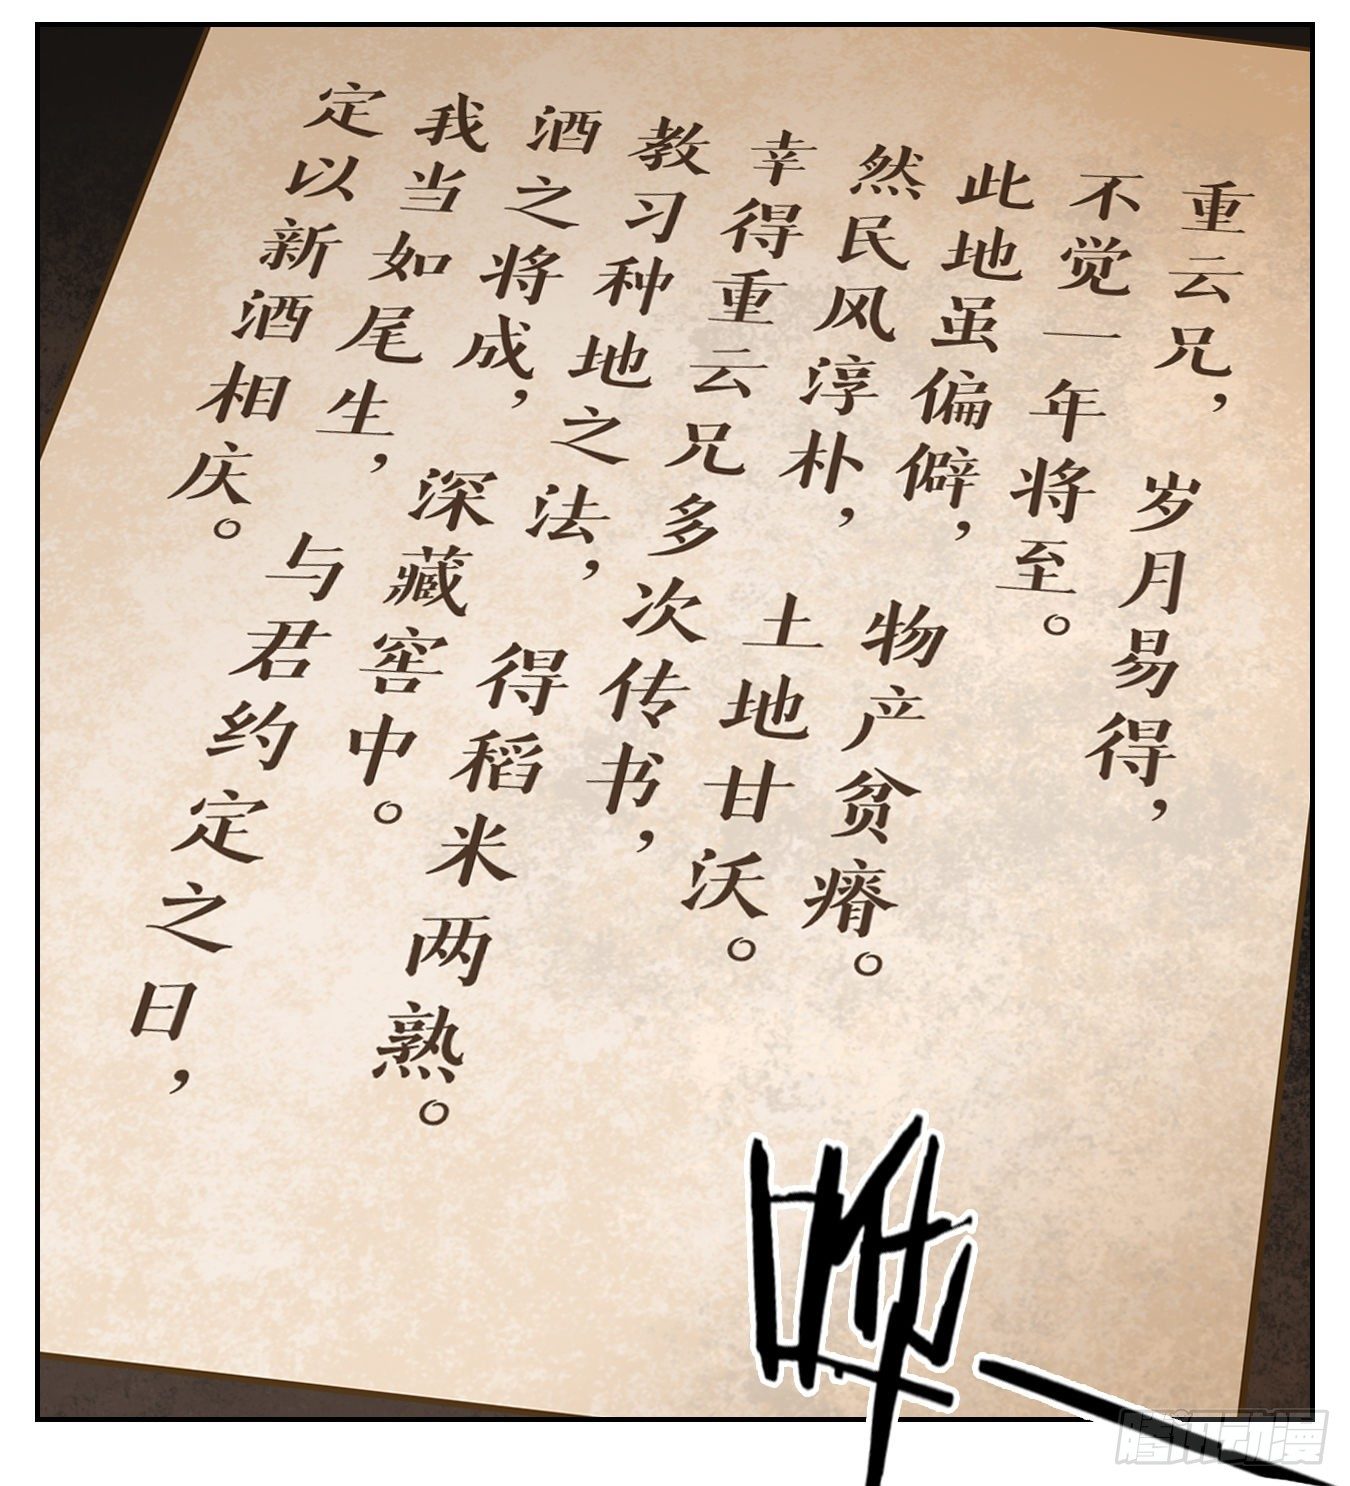 重云兄，岁月易得，
不觉一年将至。
此地虽偏僻，物产贫瘠。
然民风淳朴，土地甘沃。
幸得重云兄多次传书，
教习种地之法，得稻米两熟。
酒之将成，深藏窖中。
我当如尾生，与君约定之日，
定以新酒相庆。
腾讯动漫